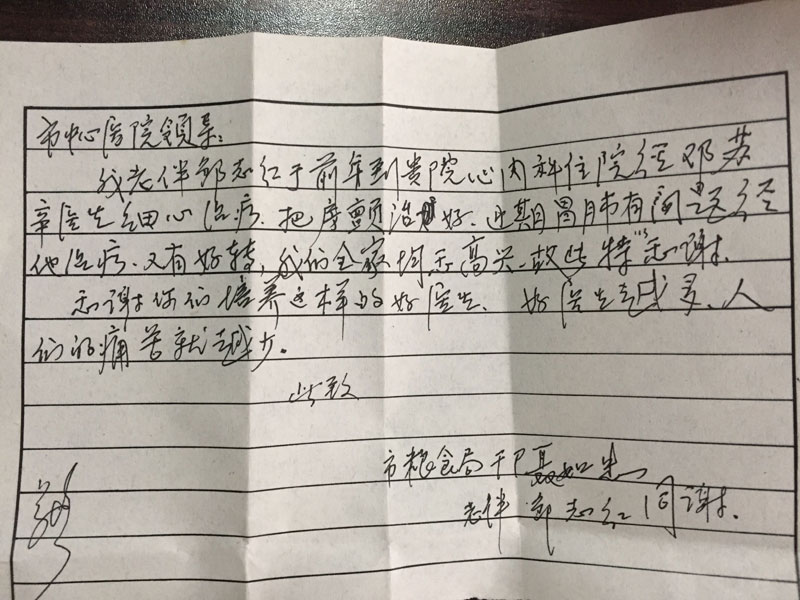 市中心医院领导:
我老伴郭志红于前年到贵院心内科住院经邓苏
辛医生细心治疗、把房颤治好。近期胃肺有问题经
他治疗、又有好转,我们全家均感高兴、故此特感谢。
感谢你们培养这样的好医生、好医生越多、人
们的痛苦就越少。
此致
市粮食局干
老伴郭志红同谢。